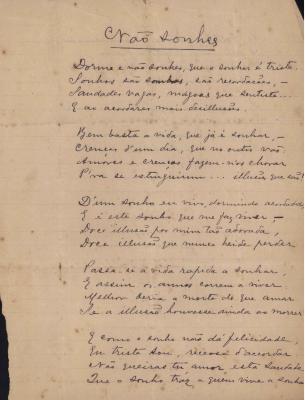 Não sonhes
Dorme e não sonhes, que o sonhar é triste
Sonhos são sonhos, são recordações, -
Saudades vagas, magoas que sentiste...
E ao acordares mais desillusões.
Bem basta a vida, que já é sonhar, -
Crenças d'um dia, que no outro vão
Amores e crenças fazem-nos chorar
P'ra se extinguirem ... illusão que são!
D'um sonho eu vivo, dormindo acordada
E é este sonho que me faz viver -
Doce illusão por mim tão adorada,
Doce illusão que nunca heide perder
Passa-se a vida rapida a sonhar,
E assim os annos correm a viver.
Melhor seria a morte do que amar
Se a illusão houvesse ainda ao morrer
E como o sonho não dá felicidade,
Eu triste sou, receosa d'acordar
Não queiras tu amor, esta saudade
Que o sonho traz a quem vive a sonhar